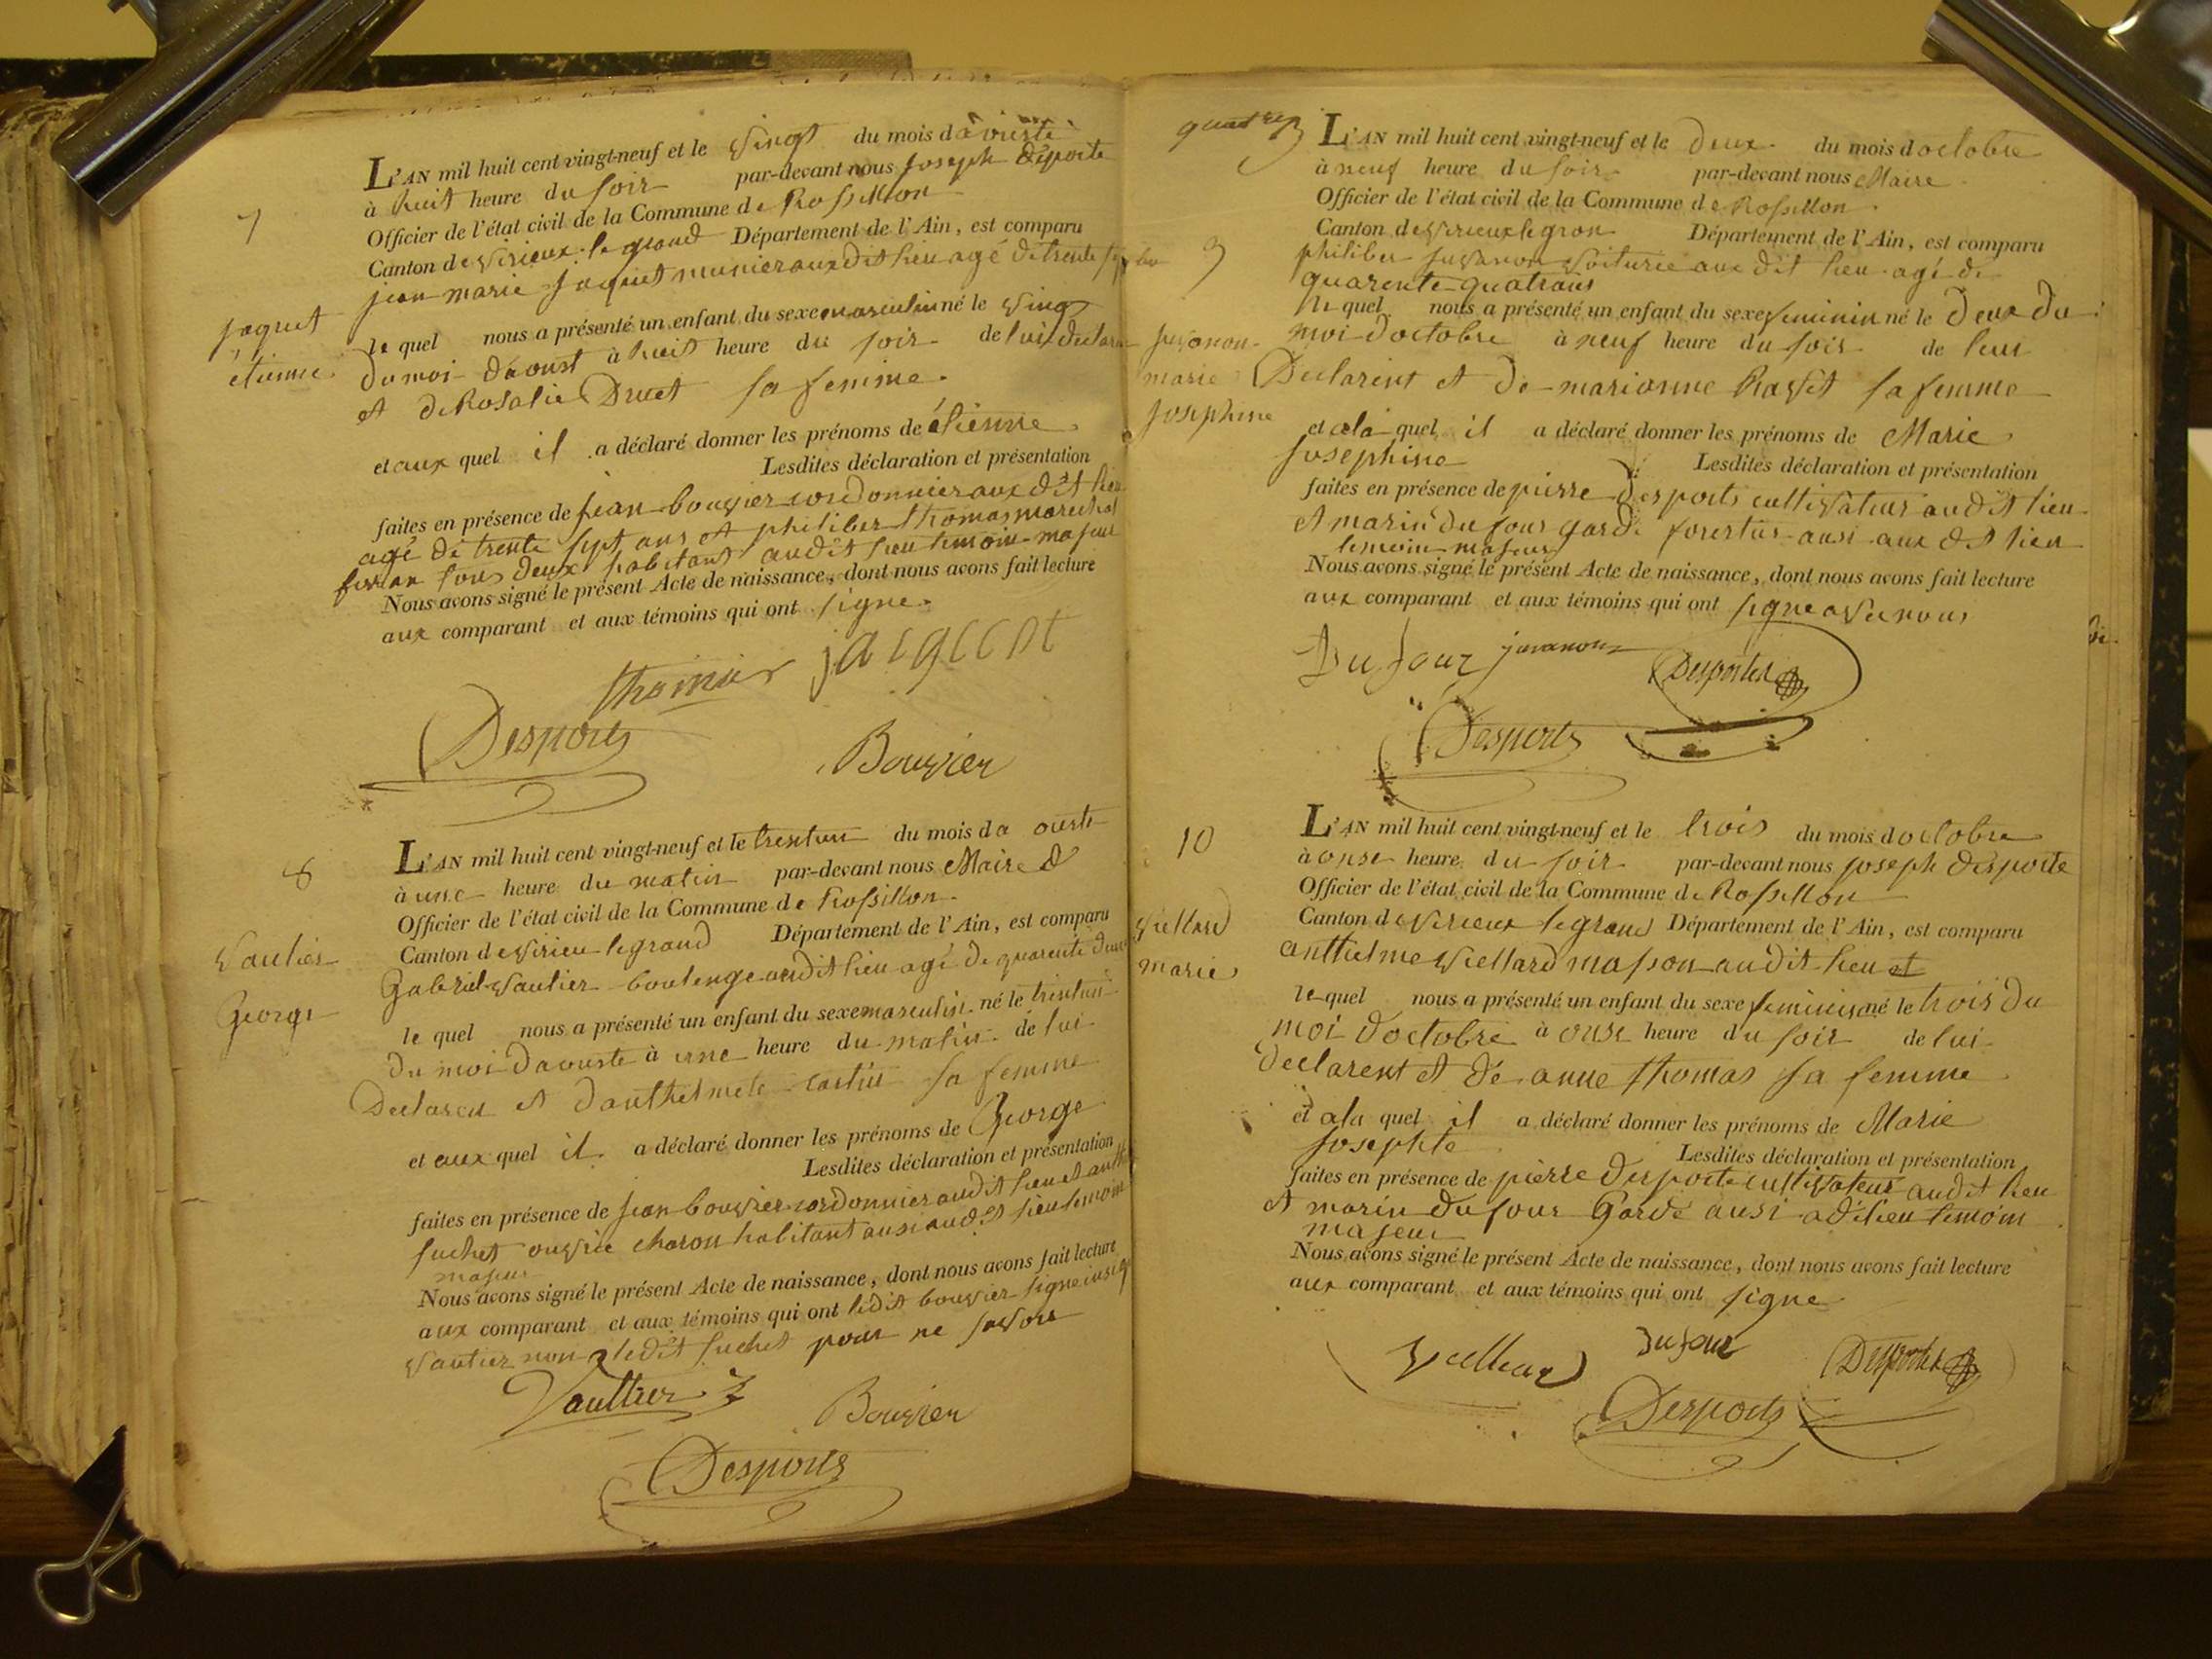 7
L'AN mil huit cent vingt-neuf et le vingt du mois d
à huit heure du soir par-devant nous joseph déporte
Officier de l'état civil de la Commune de Rossillon
Canton de virieux le grand Département de l'Ain, est comparu
jean marie jaquet munier aux dit lieu agé de trente
jaquet
étienne
le quel nous a présenté un enfant du sexe masculin né le ving
du moi daoust à huit heure du soir de lui
et de Rosalie Druet sa femme
et aux quel il a déclaré donner les prénoms de étienne
Lesdites déclaration et présentation
faites en présence de jean bouvier cordonnier aux dit lieu
agé de trente sept ans et philiber thomas marechal
tous deux habitant audit lieu temoin majeur
Nous avons signé le présent Acte de naissance, dont nous avons fait lecture
aux comparant et aux témoins qui ont signe
thomas jacquet
Desports
Bouvier
8
L'AN mil huit cent vingt-neuf et le trentun du mois da ouste
à une heure du matin par-devant nous Maire d
Officier de l'état civil de la Commune de Rossillon
Canton de virieu le grand Département de l'Ain, est comparu
Gabriel vautier boulenge audit lieu agé de quarente deux
vautier
George
le quel nous a présenté un enfant du sexe masculin né le trentun
du moi daouste à une heure du matin de lui
Declaren et danthelmete sa femme
et aux quel il a déclaré donner les prénoms de George
Lesdites déclaration et présentation
faites en présence de jean bouvier cordonnier audit lieu et
suchet ouvrie charon habitant ausi audit lieu temoin
majeur
Nous avons signé le présent Acte de naissance, dont nous avons fait lecture
aux comparant et aux témoins qui ont ledit bouvier signe
vautier non ledit suchet pour ne savoir
Vaultier
Bouvier
Desports
L'AN mil huit cent vingt-neuf et le deux du mois doctobre
à neuf heure du soir par-devant nous Maire
Officier de l'état civil de la Commune de Rossillon
Canton de virieux le gron Département de l'Ain, est comparu
9
philiber juvanon voiturie aux dit lieu agé de
quarente quatrans
le quel nous a présenté un enfant du sexe feminin né le deux du
moi doctobre à neuf heure du soir de leui
juvanon
marie
josephine
Declarent et de marianne Ravet sa femme
et ala quel il a déclaré donner les prénoms de Marie
josephine
Lesdites déclaration et présentation
faites en présence de pierre desports cultivateur audit lieu
et marin dufour garde forestier ausi aux dit lieu
temoin majeur
Nous avons signé le présent Acte de naissance, dont nous avons fait lecture
aux comparant et aux témoins qui ont signe avec nous
Dufour juvanon
Desportes
Desports
10
L'AN mil huit cent vingt-neuf et le trois du mois doctobre
à onse heure du soir par-devant nous joseph desporte
Officier de l'état civil de la Commune de Rossillon
Canton de virieux le grand Département de l'Ain, est comparu
anthelme viellard masson audit lieu et
viellard
marie
le quel nous a présenté un enfant du sexe feminin né le trois du
moi doctobre à onse heure du soir de lui
declarent et de anne thomas sa femme
et ala quel il a déclaré donner les prénoms de Marie
josephte
Lesdites déclaration et présentation
faites en présence de pierre desporte cultivateur audit lieu
et marin dufour Garde ausi adilieu temoin
majeur
Nous avons signé le présent Acte de naissance, dont nous avons fait lecture
aux comparant et aux témoins qui ont signe
Dufour
Desportes
Desports